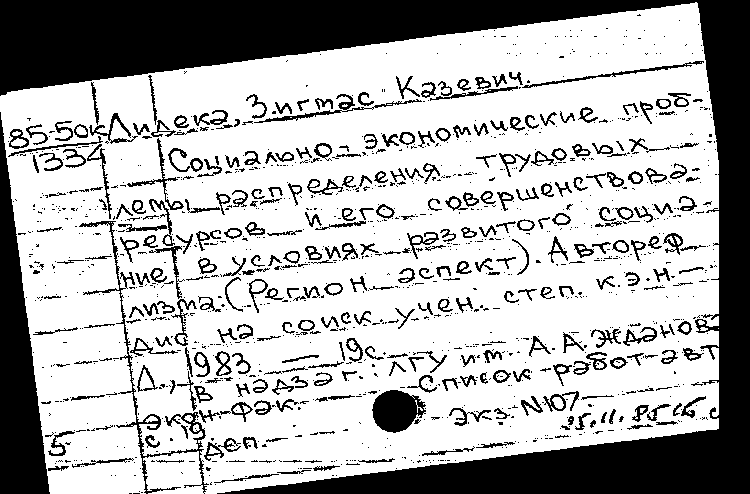 85-50к Лидека, Зигмас Казевич.
1334 Социально-экономические проб-
лемы распределения трудовых
ресурсов и его совершенствова-
ние в условиях развитого социа-
лизма: (Регион аспект). Автореф
дис на соиск учен. степ. к.э.н. —
Л., 1983 — 19с.
В надзаг.: ЛГУ им. А.А. Жданова
экон. фак. Список работ авт
с. 19 Экз. №107
5 деп. 25.11.85